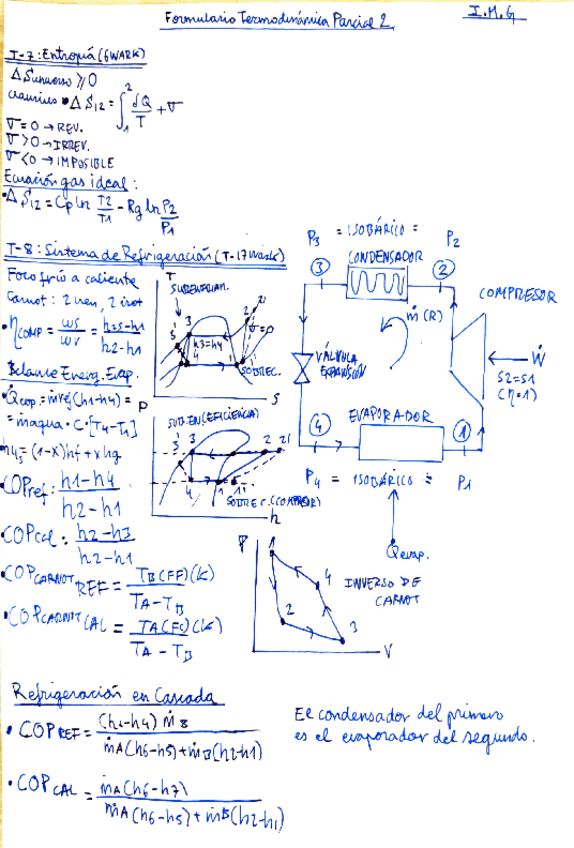 Formulario Termodinámica Parcial 2
I.M.G
T-7: Entropía (6WARK)
ΔSuniverso ≥ 0
Clausius • ΔS12 = ∫₁² δQ/T + σ
σ = 0 → REV.
σ > 0 → IRREV.
σ < 0 → IMPOSIBLE
Ecuación gas ideal:
• ΔS12 = Cp ln T2/T1 - Rg ln P2/P1
T-8: Sistema de Refrigeración (T-17Wark)
Foco frío a caliente
Carnot: 2 isen, 2 isot
• ηCOMP = ws/wr = h2s-h1/h2-h1
Balance Energ. Evap.
• Q̇evap. = ṁref(h1-h4) =
= ṁagua · C · [T4-T1]
• h4s = (1-x)hf + x hg
• COPref: h1-h4/h2-h1
• COPcal: h2-h3/h2-h1
• COPCARNOT REF = TB(FF)(K)/TA-TB
• COPCARNOT CAL = TA(FC)(K)/TA-TB
T
SUBENFRIAM.
3' 3 2 2'
h3=h4
4 1
SOBREC.
S
P
SUBEN.(EFICIENCIA)
3' 3 2 2'
4 1 1'
SOBREC.(COMPRESOR)
h
P3 = ISOBÁRICO = P2
CONDENSADOR
3 2
COMPRESOR
ṁ(R)
VÁLVULA
EXPANSIÓN
Ẇ
S2=S1
(η=1)
EVAPORADOR
4 1
P4 = ISOBÁRICO = P1
Q̇evap.
P
1
4
2
3
V
INVERSO DE
CARNOT
Refrigeración en Cascada
• COPREF = (h1-h4) ṁB/ṁA(h6-h5)+ṁB(h2-h1)
• COPCAL = ṁA(h6-h7)/ṁA(h6-h5)+ṁB(h2-h1)
El condensador del primero
es el evaporador del segundo.